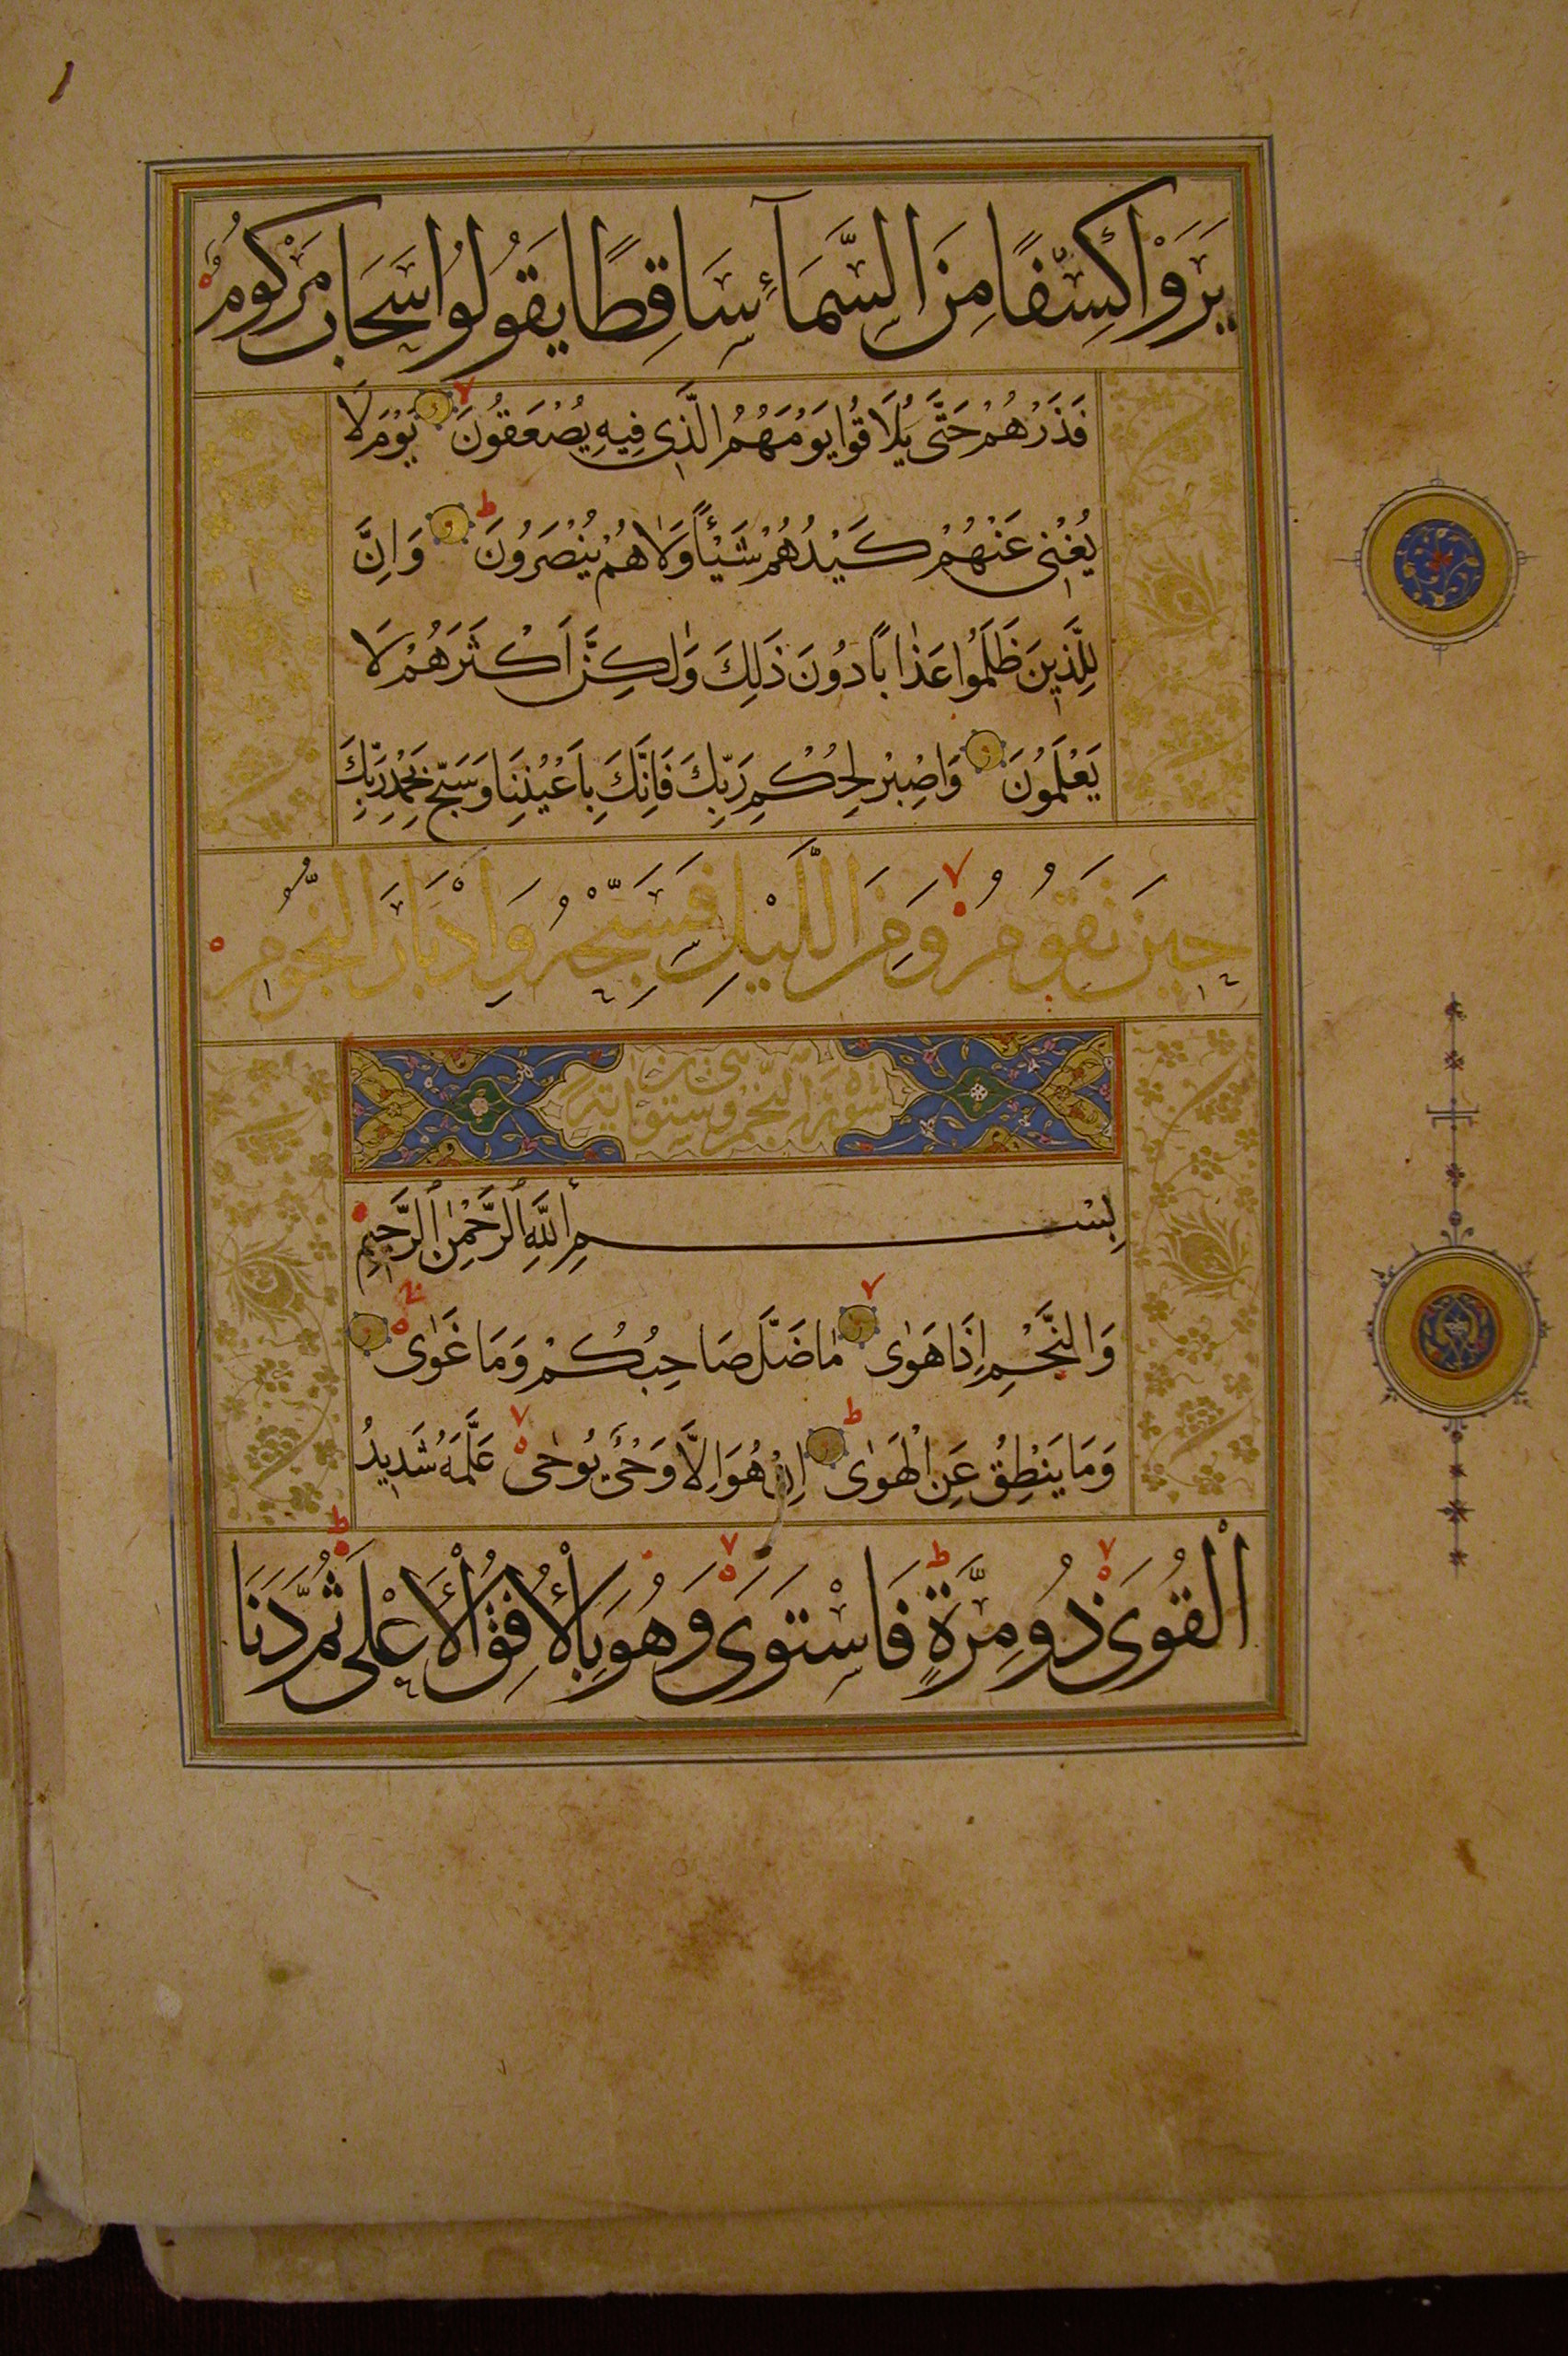 يَرَوْا كِسْفًا مِنَ السَّمَآءِ سَاقِطًا يَقُولُوا سَحَابٌ مَرْكُومٌ
فَذَرْهُمْ حَتَّى يُلَاقُوا يَوْمَهُمُ الَّذِى فِيهِ يُصْعَقُونَ يَوْمَ لَا
يُغْنِى عَنْهُمْ كَيْدُهُمْ شَيْئًا وَلَا هُمْ يُنْصَرُونَ وَاِنَّ
لِلَّذِينَ ظَلَمُوا عَذَابًا دُونَ ذَلِكَ وَلٰكِنَّ اَكْثَرَهُمْ لَا
يَعْلَمُونَ وَاصْبِرْ لِحُكْمِ رَبِّكَ فَاِنَّكَ بِاَعْيُنِنَا وَسَبِّحْ بِحَمْدِ رَبِّكَ
حِينَ تَقُومُ وَمِنَ اللَّيْلِ فَسَبِّحْهُ وَاِدْبَارَ النُّجُومِ
سورة النجم وستون اية
بِسْمِ اللَّهِ الرَّحْمٰنِ الرَّحِيمِ
وَالنَّجْمِ اِذَا هَوٰى مَا ضَلَّ صَاحِبُكُمْ وَمَا غَوٰى
وَمَا يَنْطِقُ عَنِ الْهَوٰى اِنْ هُوَ اِلَّا وَحْىٌ يُوحٰى عَلَّمَهُ شَدِيدُ
الْقُوَى ذُو مِرَّةٍ فَاسْتَوَى وَهُوَ بِالْأُفُقِ الْأَعْلَى ثُمَّ دَنَا